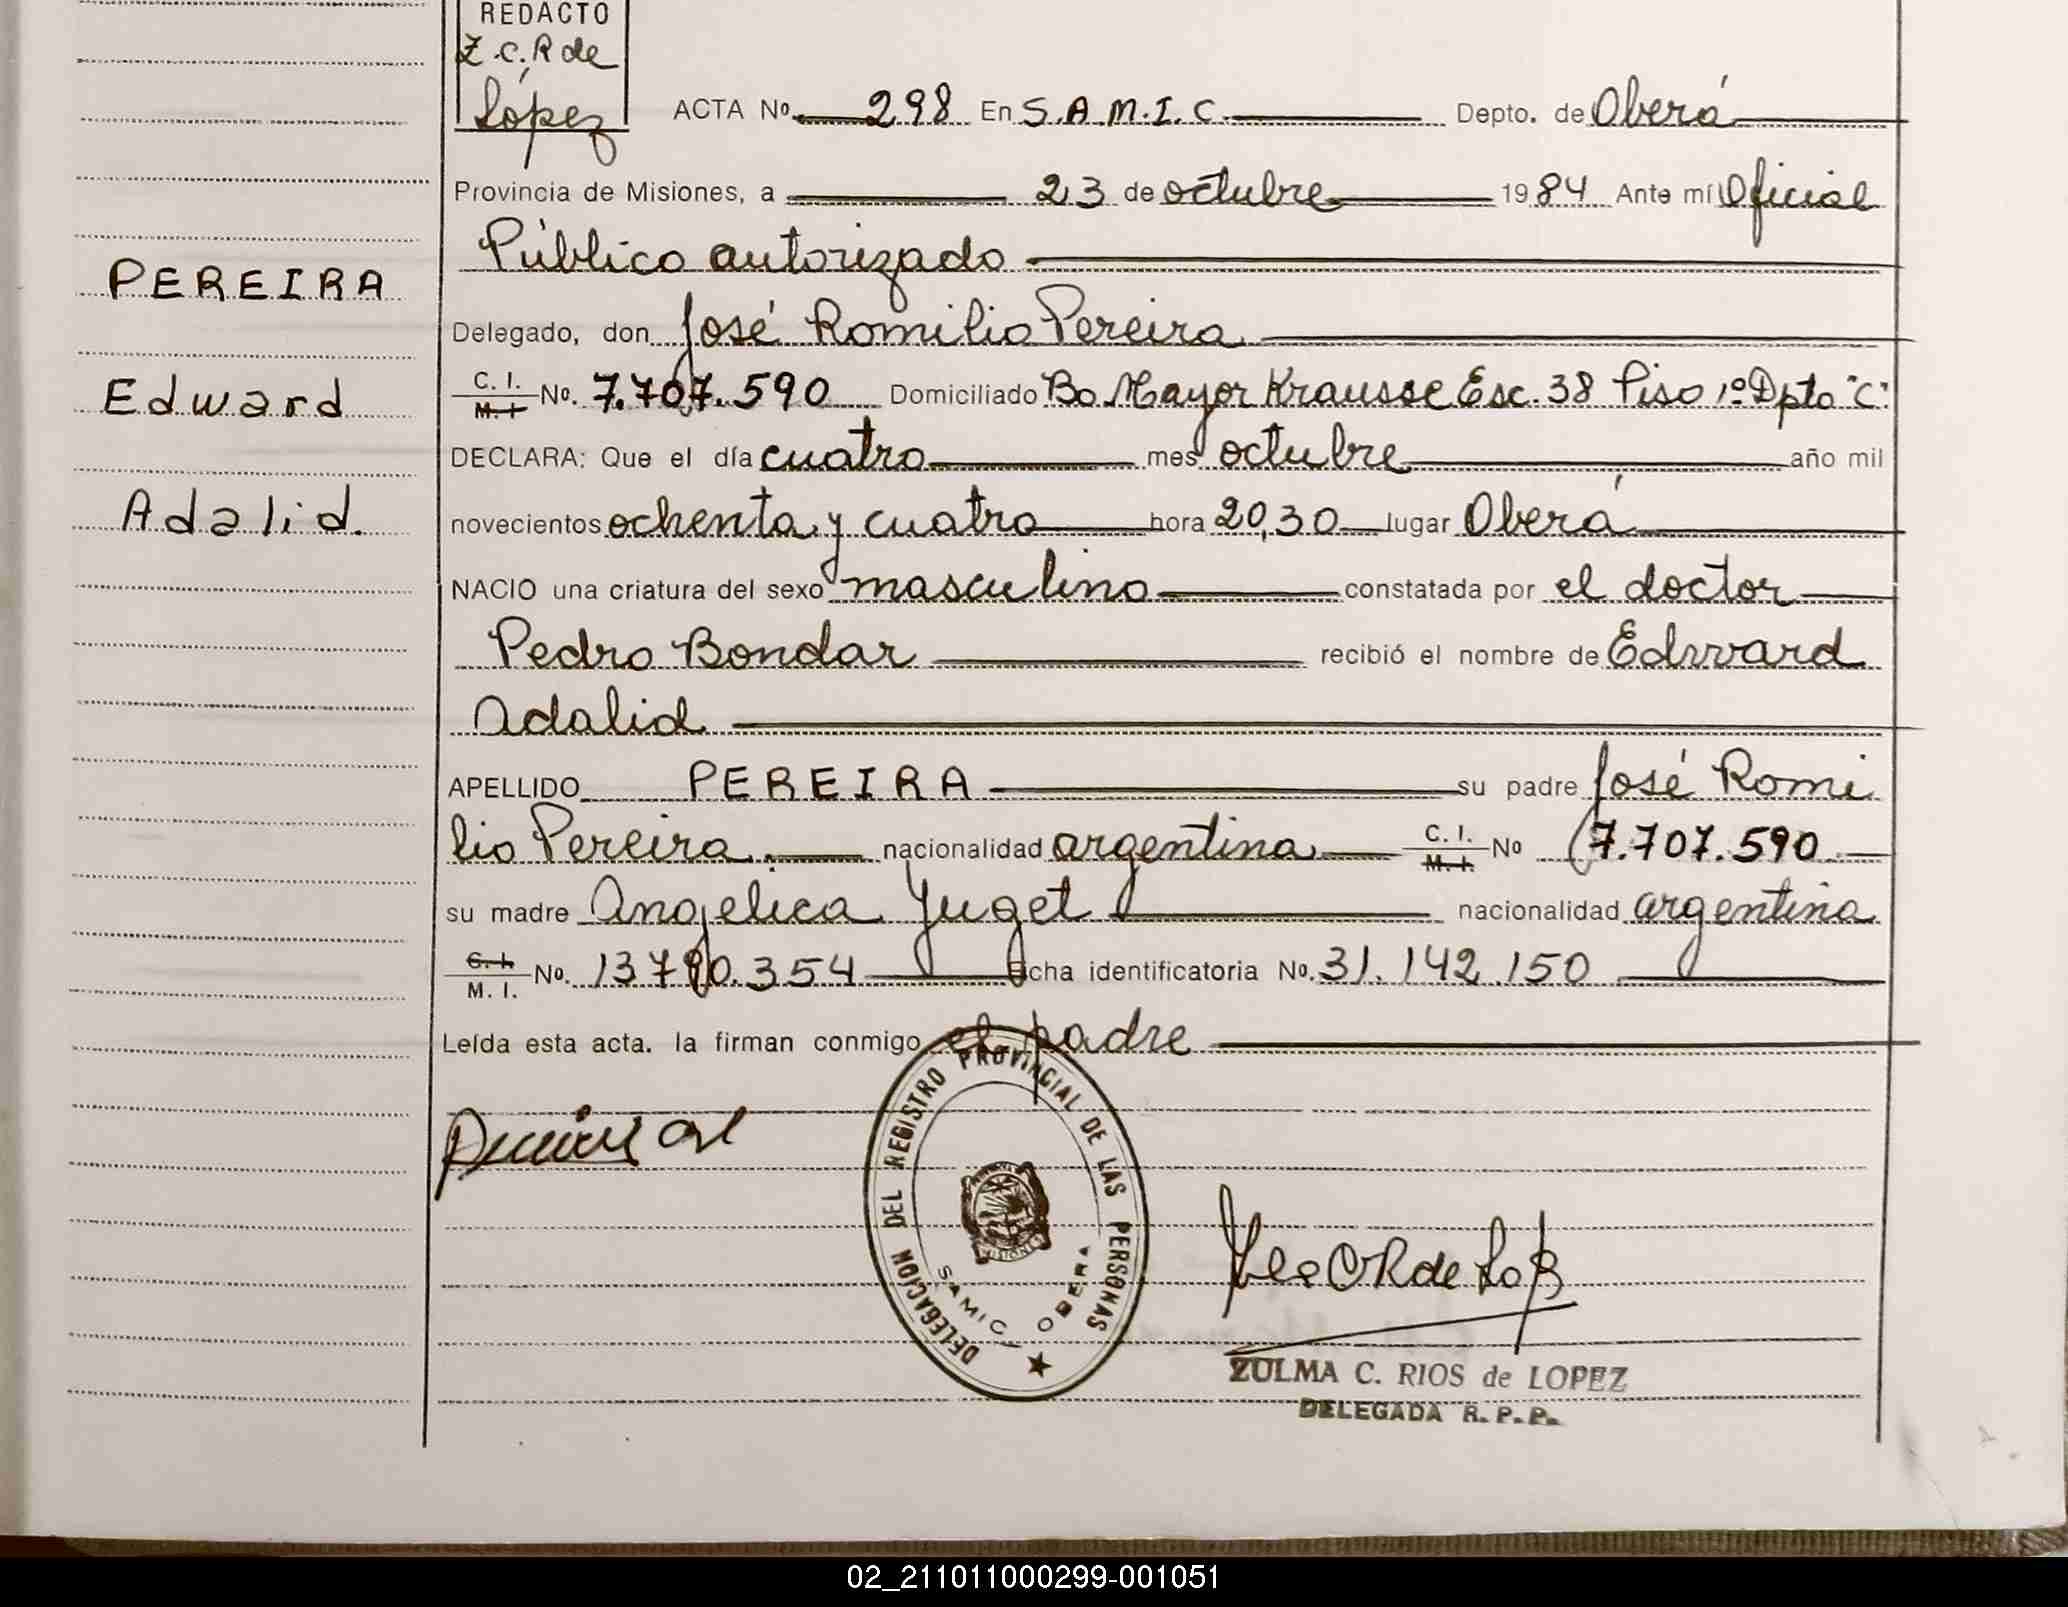 REDACTO
Z.C.R de
López
ACTA No. 298 En S.A.M.I.C. Depto. de Oberá
Provincia de Misiones, a 23 de octubre 1984 Ante mí Oficial
Público autorizado
PEREIRA
Delegado, don José Romilio Pereira
C. I. M. I No. 7.707.590 Domiciliado Bo Mayor Krausse Esc. 38 Piso 1º Dpto "C"
Edward
DECLARA: Que el día cuatro mes octubre año mil
Adalid.
novecientos ochenta y cuatro hora 20,30 lugar Oberá
NACIO una criatura del sexo masculino constatada por el doctor
Pedro Bondar recibió el nombre de Edward
Adalid
APELLIDO PEREIRA su padre José Romi
lio Pereira. nacionalidad argentina C. I. M. I. No 7.707.590
su madre Angelica Yuget nacionalidad argentina
C. I. M. I. No. 13790.354 ficha identificatoria No. 31.142.150
Leída esta acta. la firman conmigo el padre
DELEGACION DEL REGISTRO PROVINCIAL DE LAS PERSONAS
MISIONES
SAMIC OBERA
ZULMA C. RIOS de LOPEZ
DELEGADA R. P. P.
02_211011000299-001051